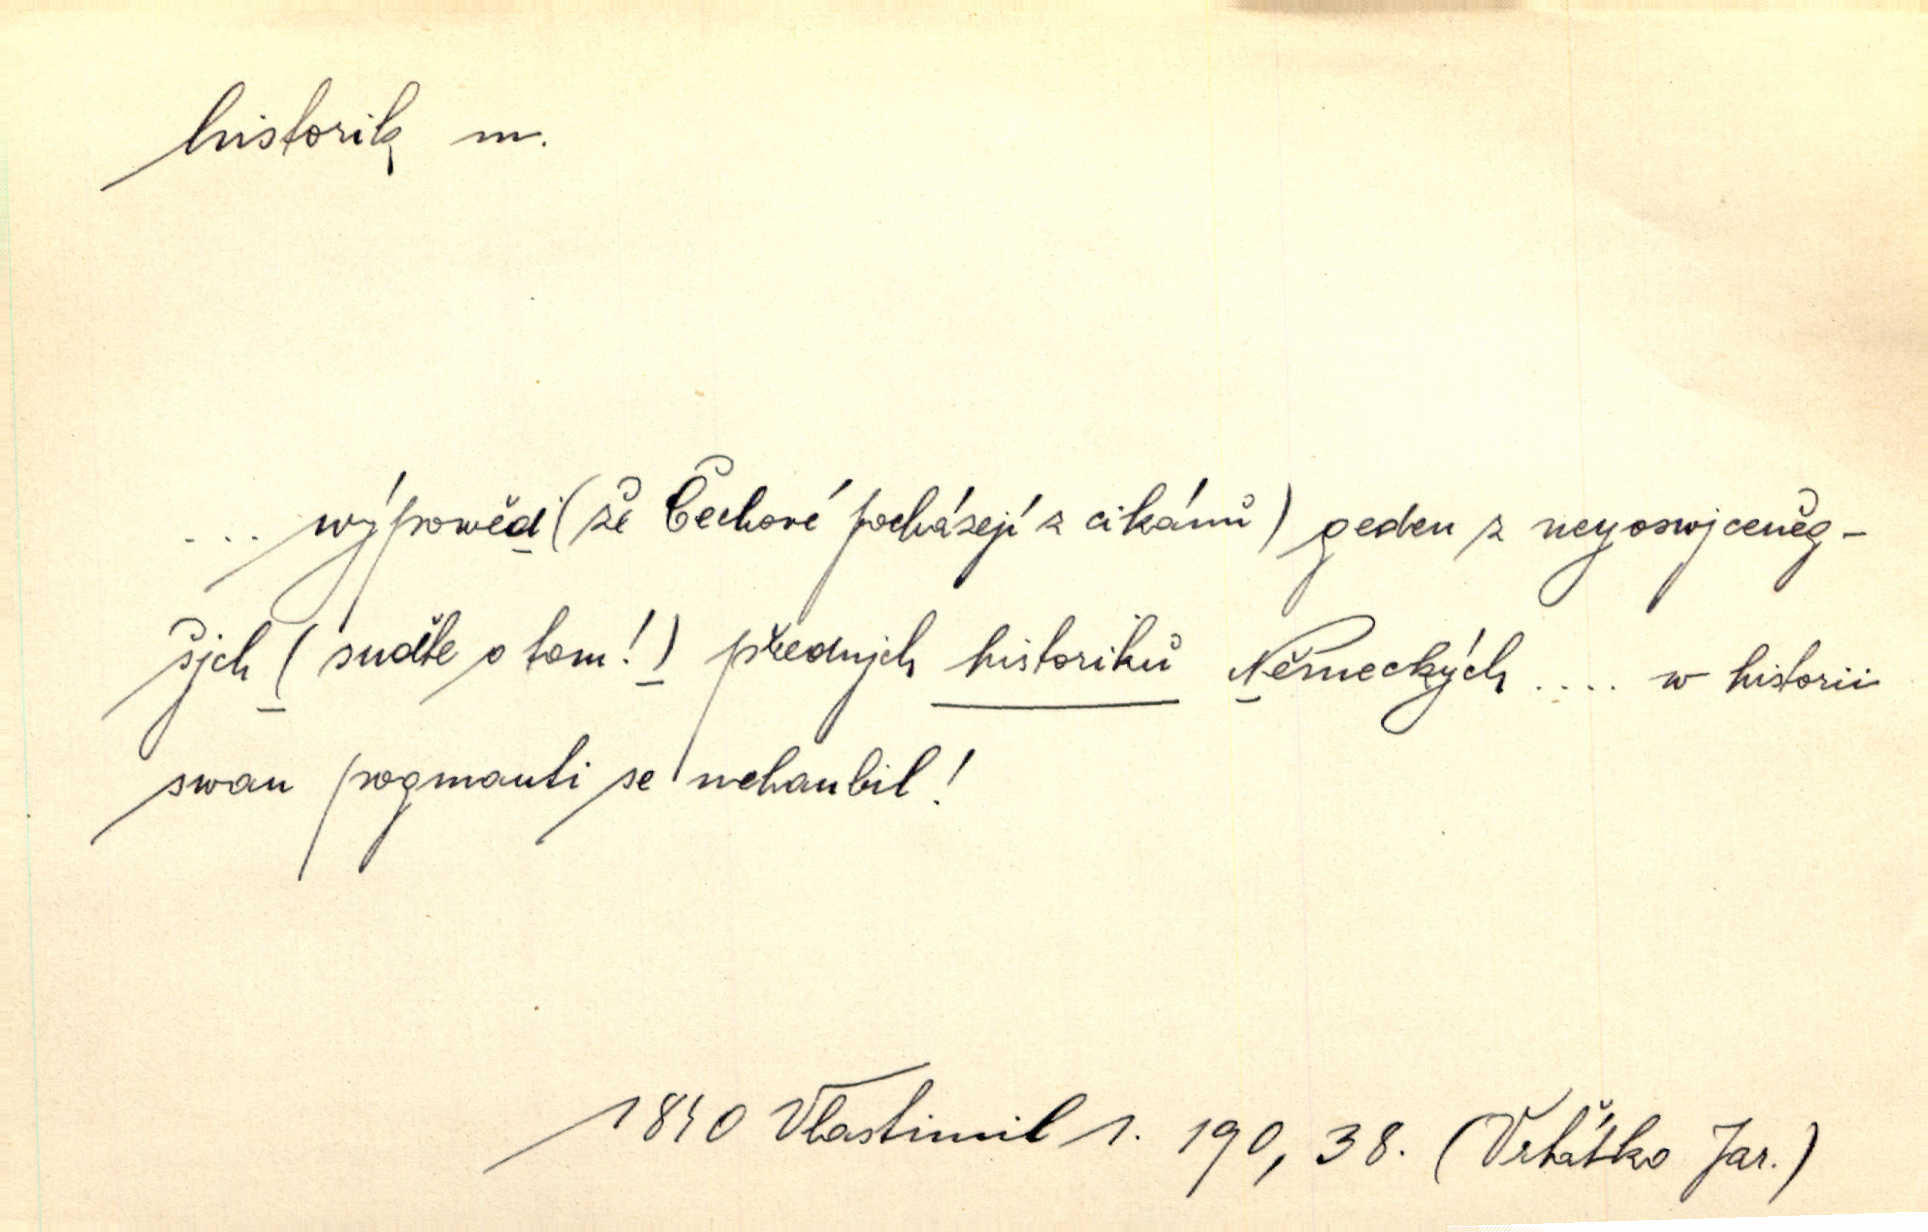 historik m.
... wýpowěd (že Čechové pocházejí z cikánů) geden z neyoswjceněg-
šjch (suďte o tom!) přednjch historiků Německých .... w historii
swau pogmauti se nehanbil!
1840 Vlastimil 1. 190, 38. (Vrťátko Jar.)